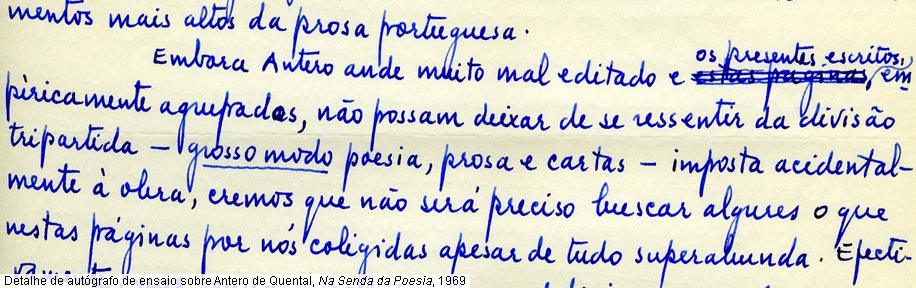 mentos mais altos da prosa portuguesa.
Embora Antero ande muito mal editado e os presentes escritos, em-
estas páginas,
pìricamente agrupados, não possam deixar de se ressentir da divisão
tripartida — grosso modo poesia, prosa e cartas — imposta acidental-
mente à obra, cremos que não será preciso buscar algures o que
nestas páginas por nós coligidas apesar de tudo superabunda. Efecti-
vamente
Detalhe de autógrafo de ensaio sobre Antero de Quental, Na Senda da Poesia, 1969